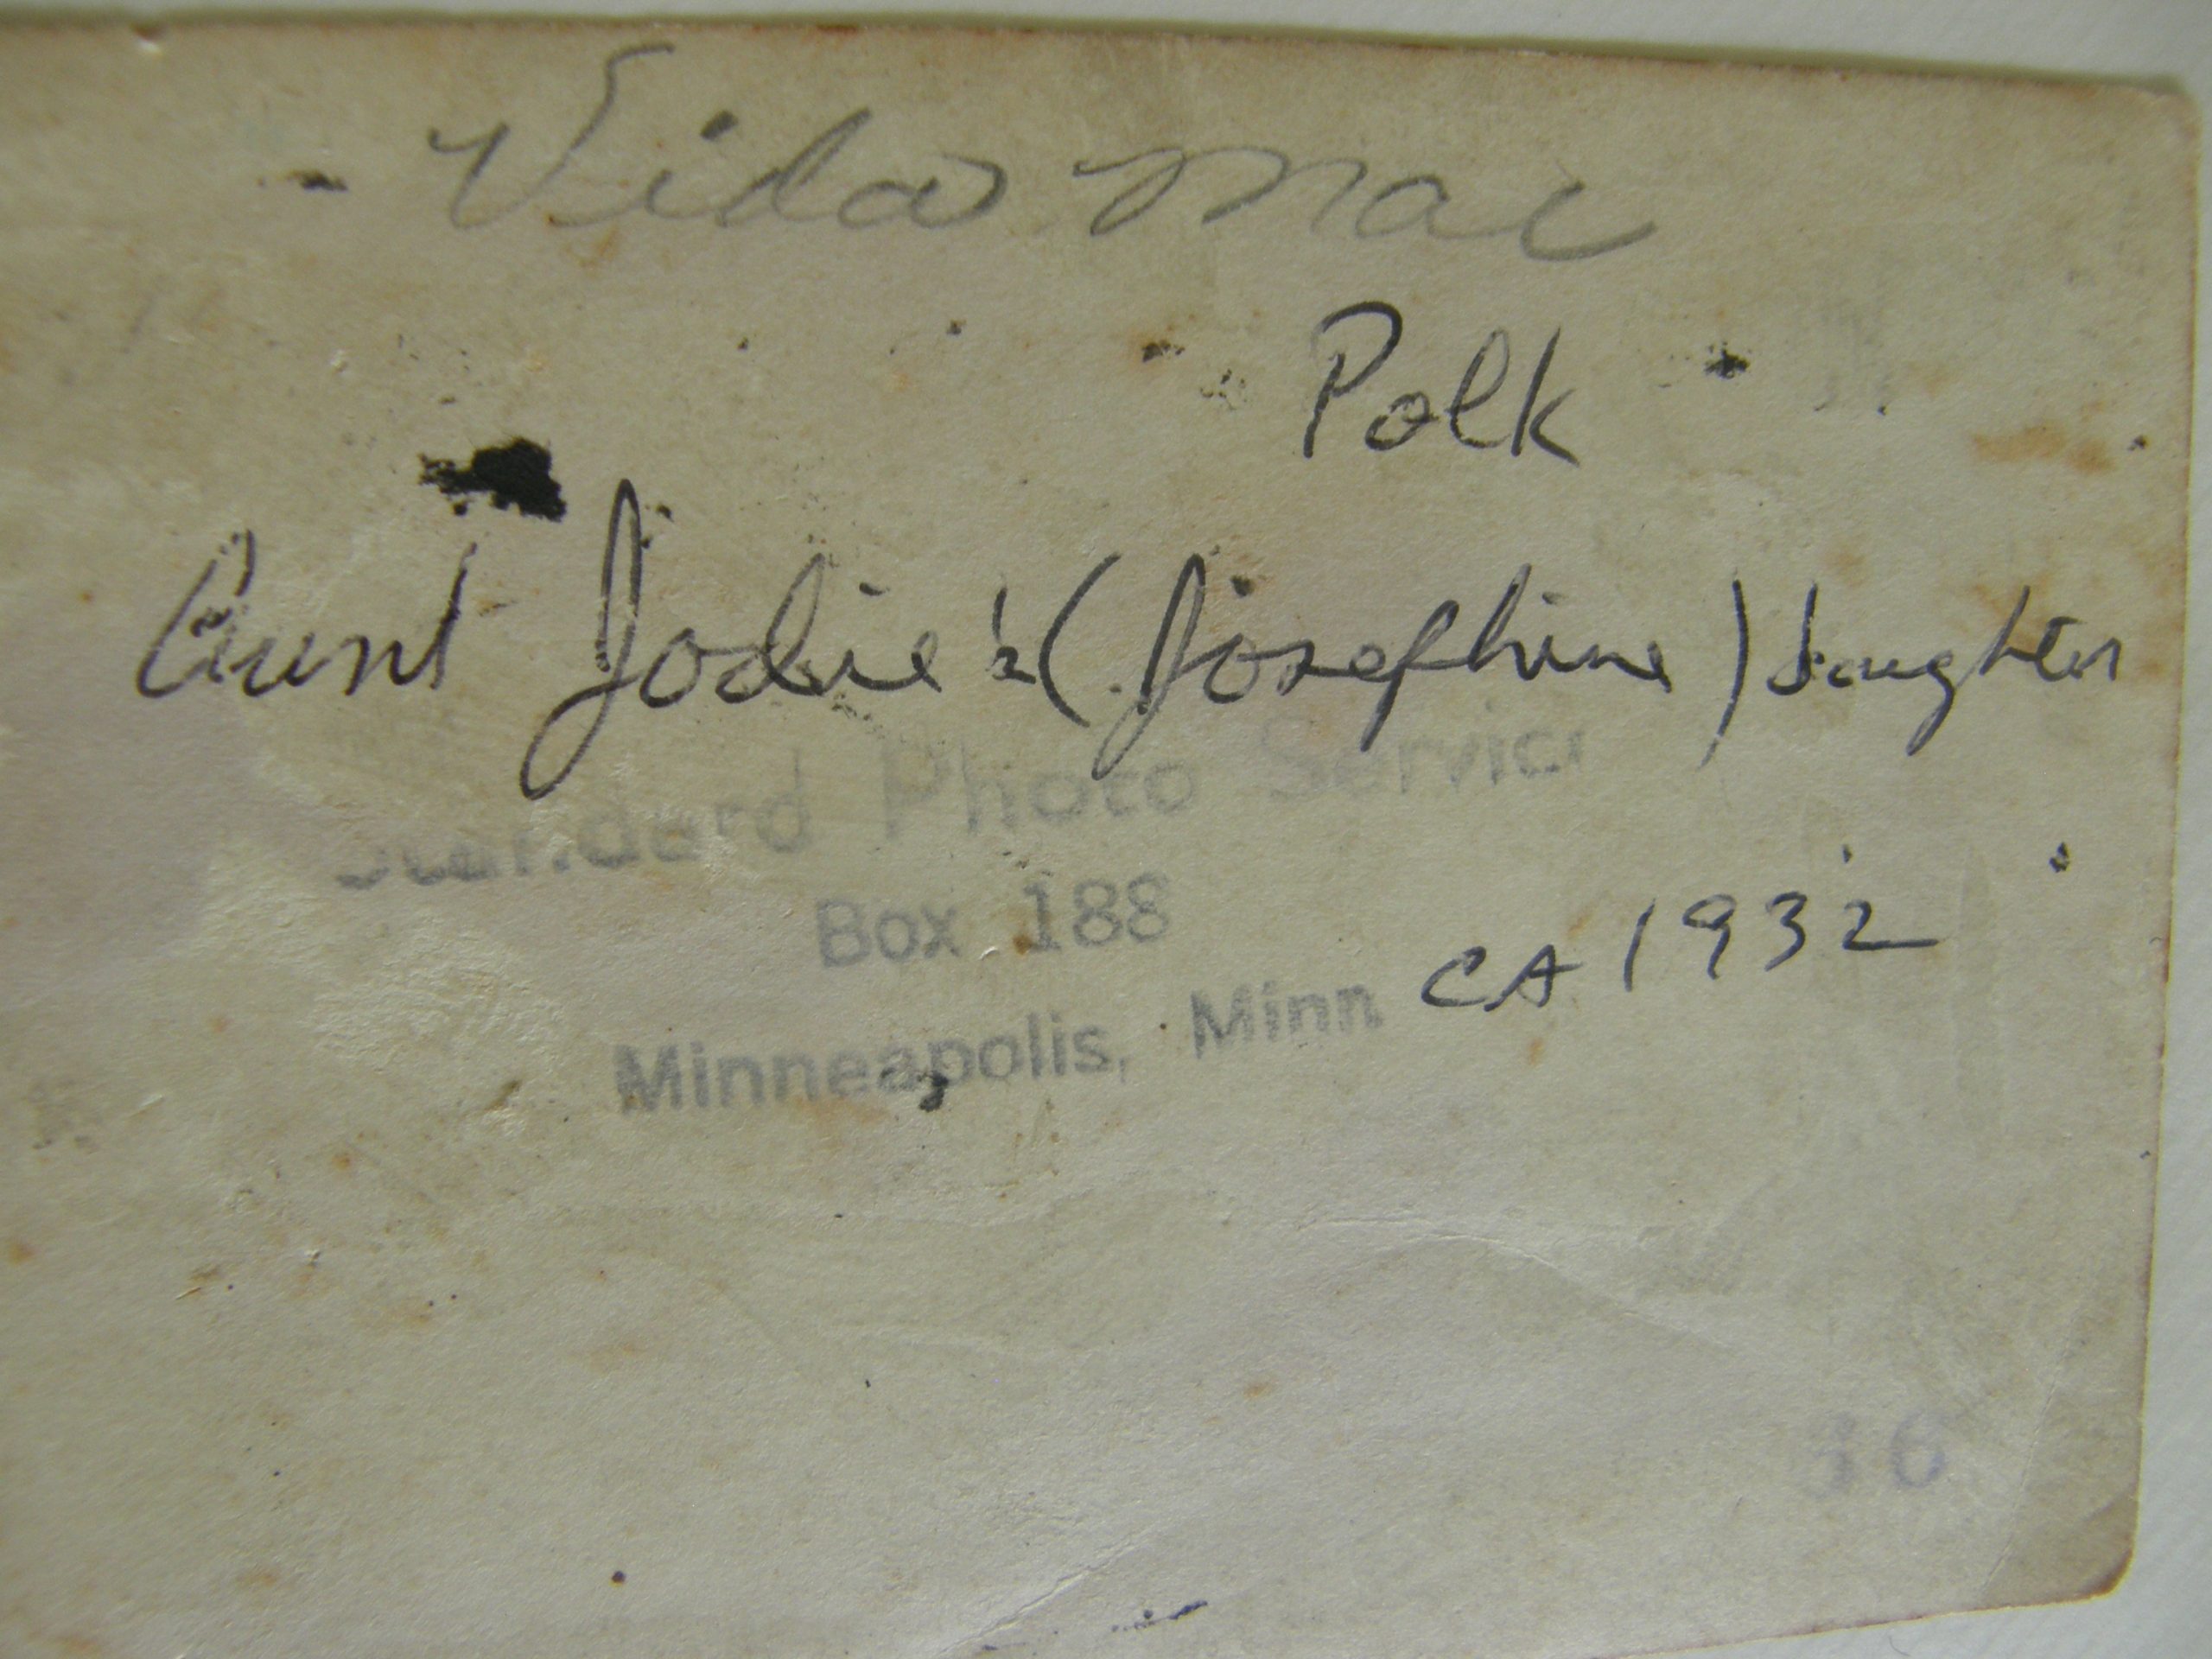 Vida Mae
Polk
Aunt Jodie's (Josephine) daughter
Standard Photo Service
Box 188
Minneapolis, Minn
CA 1932
36